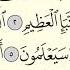 ٱلنَّبَإِ ٱلْعَظِيمِ ٢
سَيَعْلَمُونَ ٥